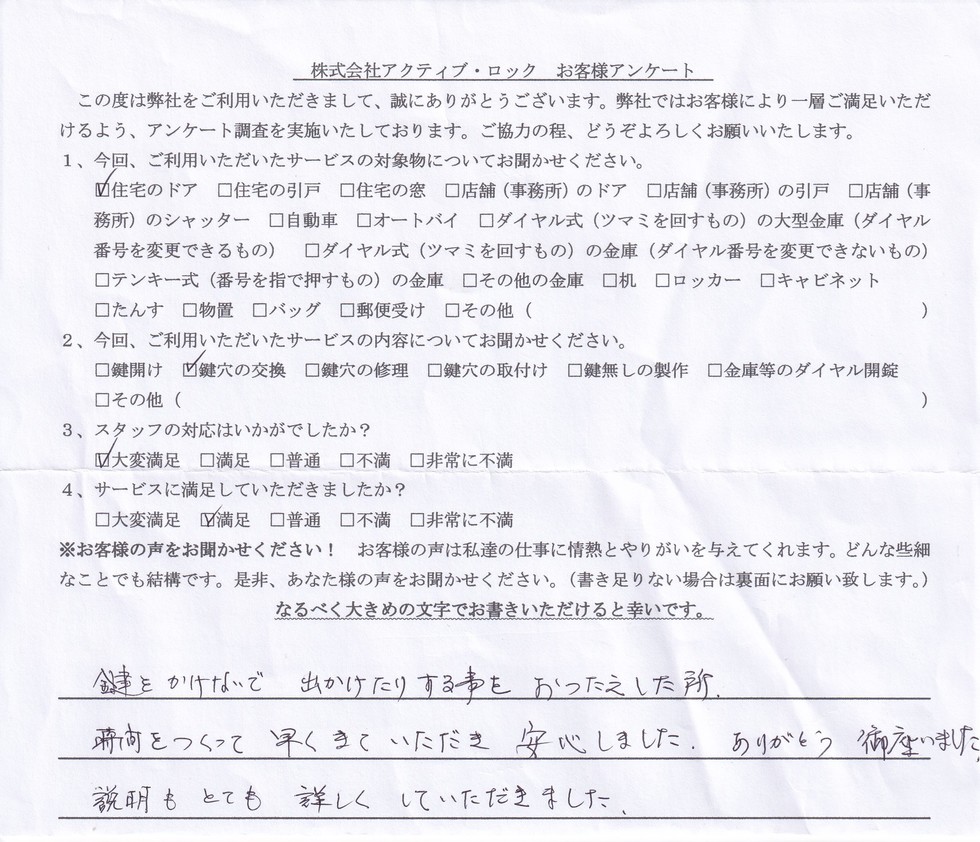 株式会社アクティブ・ロック　お客様アンケート
この度は弊社をご利用いただきまして、誠にありがとうございます。弊社ではお客様により一層ご満足いただ
けるよう、アンケート調査を実施いたしております。ご協力の程、どうぞよろしくお願いいたします。
1、今回、ご利用いただいたサービスの対象物についてお聞かせください。
☑住宅のドア　□住宅の引戸　□住宅の窓　□店舗（事務所）のドア　□店舗（事務所）の引戸　□店舗（事
務所）のシャッター　□自動車　□オートバイ　□ダイヤル式（ツマミを回すもの）の大型金庫（ダイヤル
番号を変更できるもの）　□ダイヤル式（ツマミを回すもの）の金庫（ダイヤル番号を変更できないもの）
□テンキー式（番号を指で押すもの）の金庫　□その他の金庫　□机　□ロッカー　□キャビネット
□たんす　□物置　□バッグ　□郵便受け　□その他（　　　）
2、今回、ご利用いただいたサービスの内容についてお聞かせください。
□鍵開け　☑鍵穴の交換　□鍵穴の修理　□鍵穴の取付け　□鍵無しの製作　□金庫等のダイヤル開錠
□その他（　　　）
3、スタッフの対応はいかがでしたか？
☑大変満足　□満足　□普通　□不満　□非常に不満
4、サービスに満足していただきましたか？
□大変満足　☑満足　□普通　□不満　□非常に不満
※お客様の声をお聞かせください！　お客様の声は私達の仕事に情熱とやりがいを与えてくれます。どんな些細
なことでも結構です。是非、あなた様の声をお聞かせください。（書き足りない場合は裏面にお願い致します。）
なるべく大きめの文字でお書きいただけると幸いです。
鍵をかけないで　出かけたりする事を　おつたえした所、
時間をつくって　早くきていただき　安心しました。ありがとう　御座いました。
説明もとても　詳しく　していただきました。